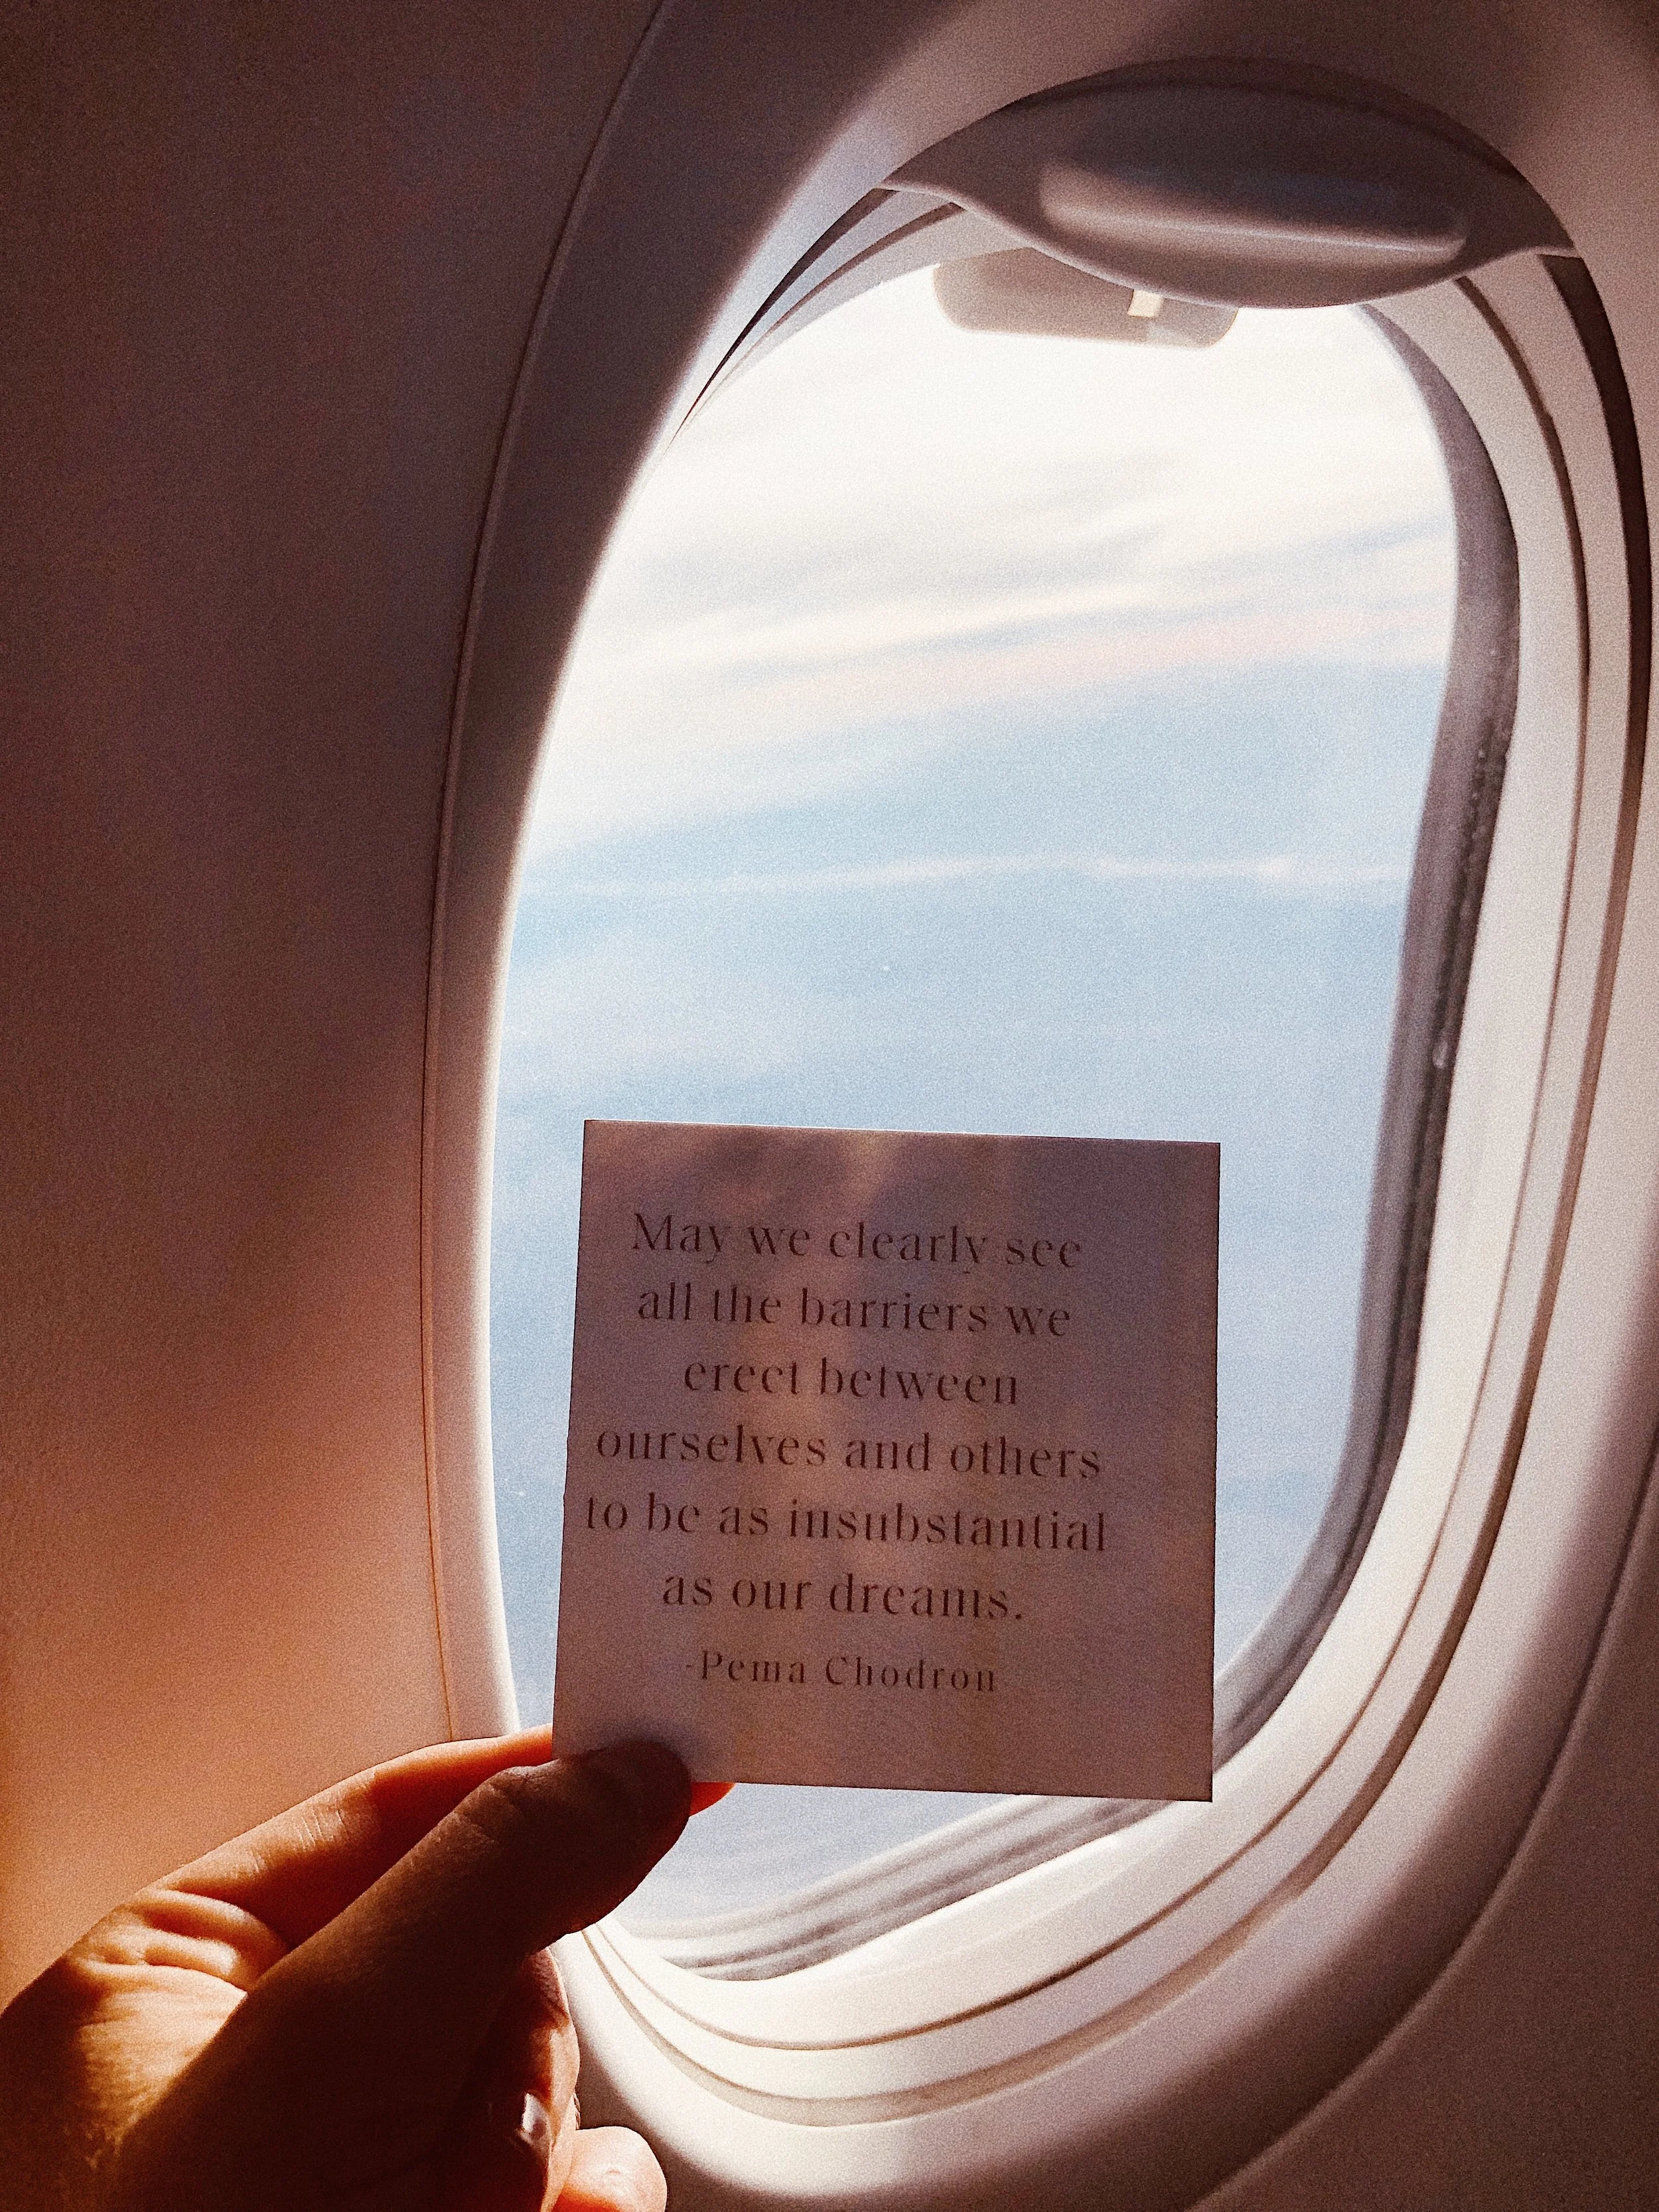 May we clearly see
all the barriers we
erect between
ourselves and others
to be as insubstantial
as our dreams.
-Pema Chodron